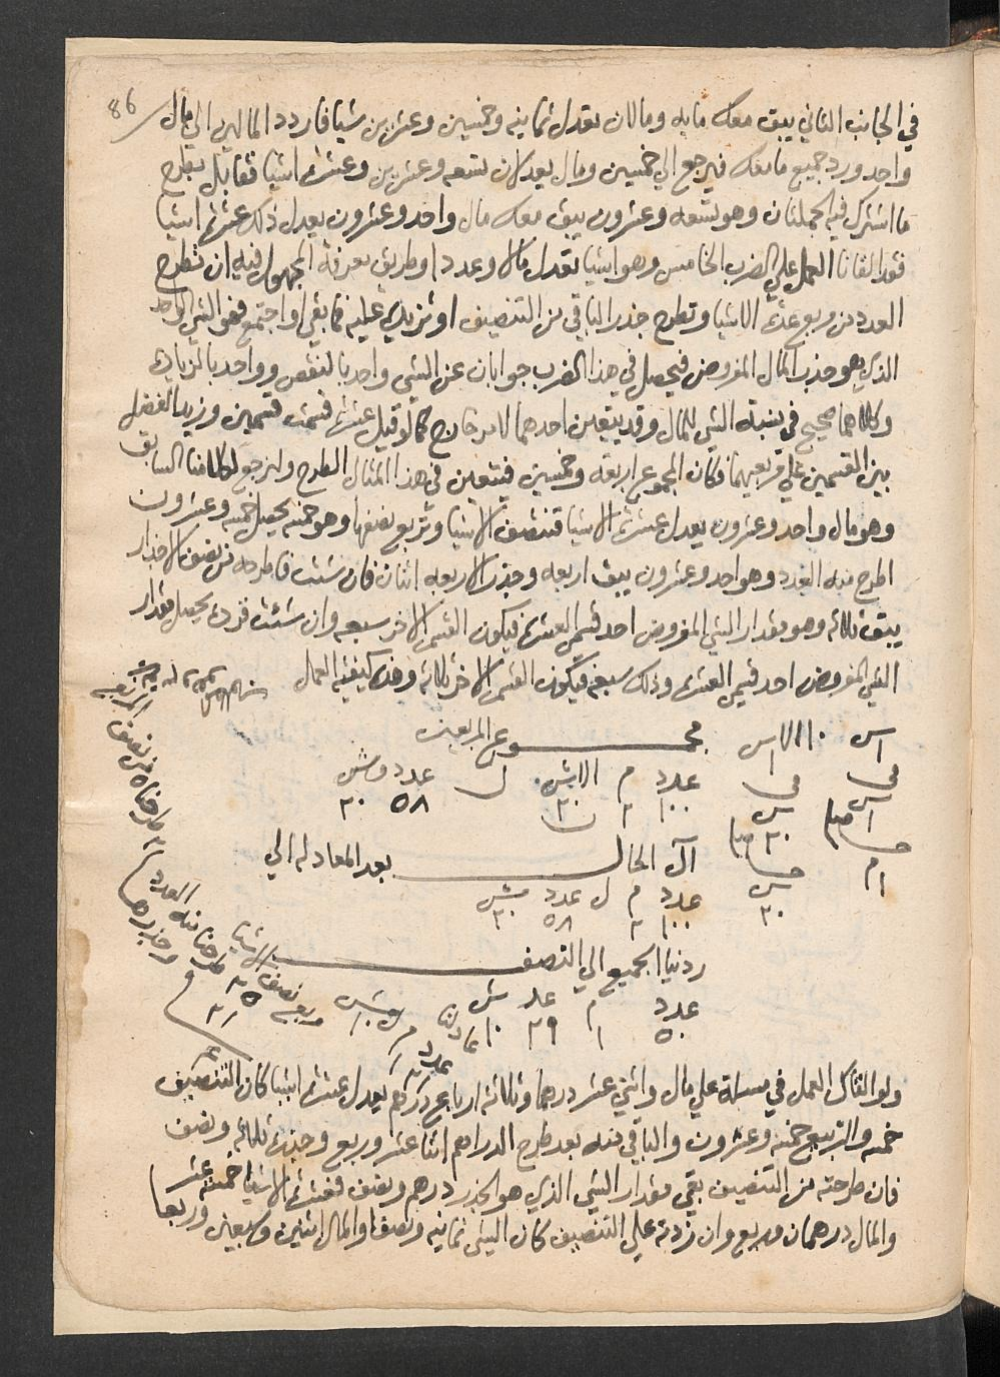 86
في الجانب الثاني يبق معك مايه ومالان يعدل ثمانيه وخمسين وعشرين شيا فاردد المالين الي مال
واحد ورد جميع مامعك فيرجع الي خمسين ومال يعدلان تسعه وعشرين وعشرة اشيا فقابل بطرح
ما اشترك فيه الجملتان وهو تسعه وعشرون يبق معك مال واحد وعشرون يعدل ذلك عشرة اشيا
فقد القانا العمل علي الضرب الخامس وهو اشيا تعدل مالا وعددا وطريق معرفة المجهول فيه ان تطرح
العدد من مربع عدة الاشيا وتطرح جذر الباقي من التنصيف او تزيده عليه فما بقي او اجتمع فهو الشي الواحد
الذي هو جذر المال المفروض فيحصل في هذا الضرب جوابان عن الشي واحد بالنقص وواحد بالزيادة
وكلاهما صحيح في نسبة الشي للمال وقد يتعين احدهما لامر خارج كما لو قيل عشرة قسمت قسمين وزيد الفضل
بين القسمين علي مربعيهما فكان المجموع اربعة وخمسين فيتعين في هذا المثال الطرح ولنرجع لكلامنا السابق
وهو مال واحد وعشرون يعدل عشرة الاشيا فتنصف الاشيا وتربع نصفها وهو خمسه يحصل خمسه وعشرون
اطرح منه العدد وهو واحد وعشرون يبق اربعه وجذر الاربعه اثنان فان شئت فاطرحه من نصف الاجذار
يبق ثلاثه وهو مقدار الشي المفروض احد قسمي العشرة فيكون القسم الاخر سبعه وان شئت فزده يحصل مقدار
الشي المفروض احد قسمي العشرة وذلك سبعة فيكون القسم الاخر ثلاثه وهذه كيفية العمل
مجموع المربعين
عدد م الاش ل عدد وش
١٠٠ ٢ ٢٠ ٥٨ ٢٠
آل الحال بعد المعادله الي
عدد م ل عدد ش
١٠٠ ٢ ٥٨ ٢٠
ردنيا الجميع الي النصف
عدد م عدد ش
٥٠ ١ ٢٩ ١٠
ولو القاك العمل في مسلة علي مال واثني عشر درهما وثلاثة ارباع درهم يعدل عشرة اشيا كان التنصيف
خمسه والتربيع خمسه وعشرون والباقي منه بعد طرح الدراهم اثنا عشر وربع وجذره ثلاثه ونصف
فان طرحته من التنصيف بقي مقدار الشي الذي هو الجذر درهم ونصف فعشرة الاشيا خمسة عشر
والمال درهمان وربع وان زدته علي التنصيف كان الشي ثمانيه ونصفا والمال اثنين وسبعين وربعا